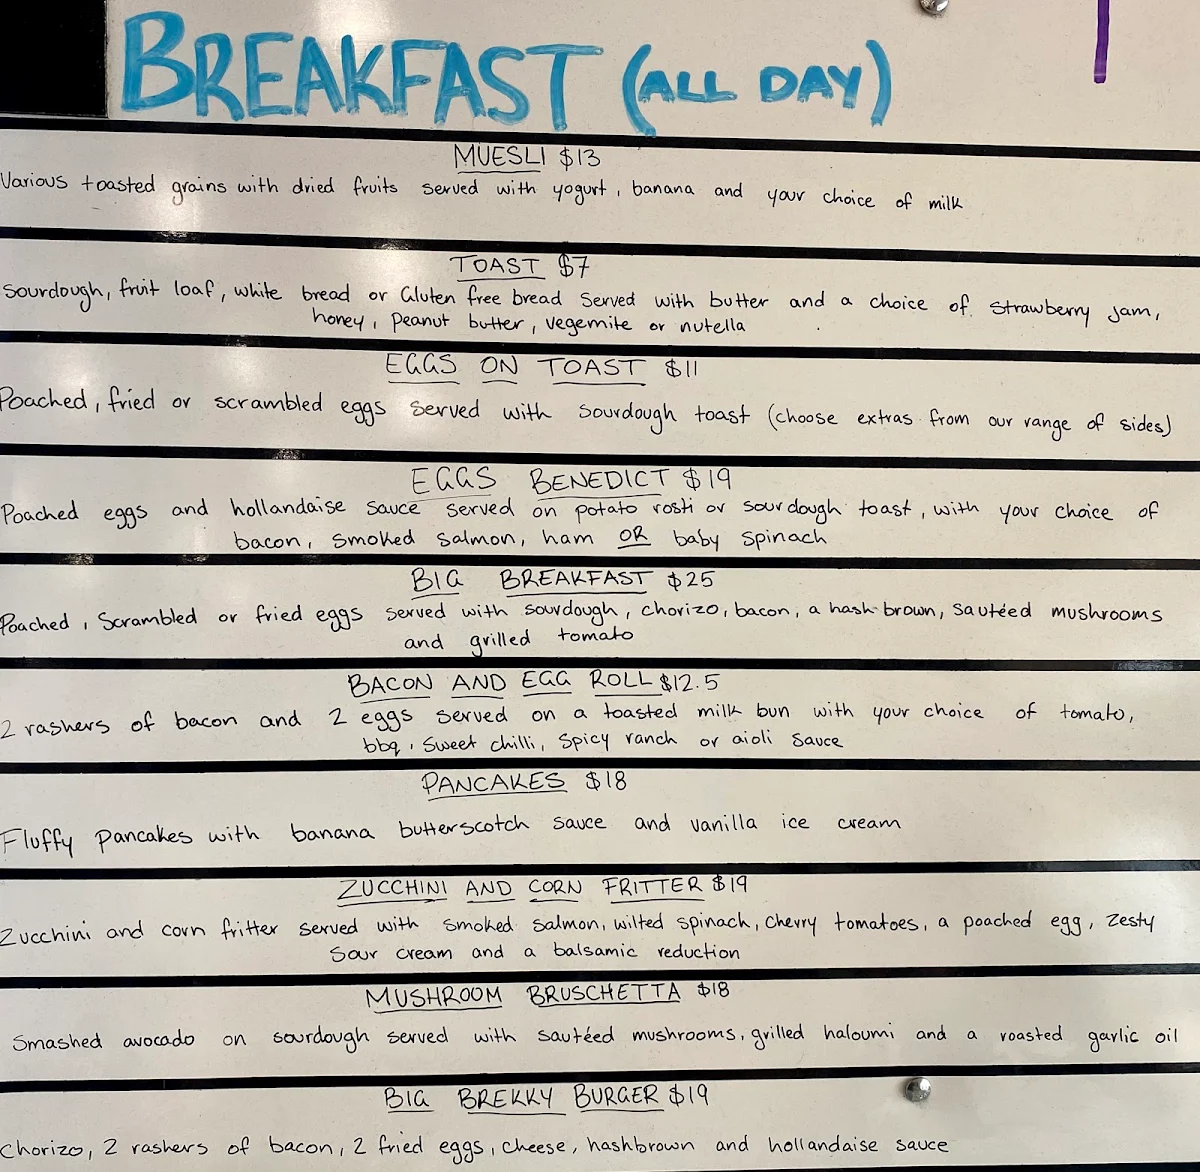 BREAKFAST (ALL DAY)
MUESLI $13
Various toasted grains with dried fruits served with yogurt, banana and your choice of milk
TOAST $7
Sourdough, fruit loaf, white bread or Gluten free bread Served with butter and a choice of Strawberry jam,
honey, Peanut butter, vegemite or nutella
EGGS ON TOAST $11
Poached, fried or scrambled eggs served with sourdough toast (choose extras from our range of sides)
EGGS BENEDICT $19
Poached eggs and hollandaise sauce served on potato rosti or sourdough toast, with your choice of
bacon, smoked salmon, ham OR baby spinach
BIG BREAKFAST $25
Poached, Scrambled or fried eggs served with sourdough, chorizo, bacon, a hash brown, sautéed mushrooms
and grilled tomato
BACON AND EGG ROLL $12.5
2 rashers of bacon and 2 eggs served on a toasted milk bun with your choice of tomato,
bbq, Sweet chilli, Spicy ranch or aioli sauce
PANCAKES $18
Fluffy Pancakes with banana butterscotch sauce and vanilla ice cream
ZUCCHINI AND CORN FRITTER $19
Zucchini and corn fritter served with smoked salmon, wilted spinach, Cherry tomatoes, a poached egg, zesty
sour cream and a balsamic reduction
MUSHROOM BRUSCHETTA $18
Smashed avocado on sourdough served with sautéed mushrooms, grilled haloumi and a roasted garlic oil
BIG BREKKY BURGER $19
Chorizo, 2 rashers of bacon, 2 fried eggs, cheese, hashbrown and hollandaise sauce